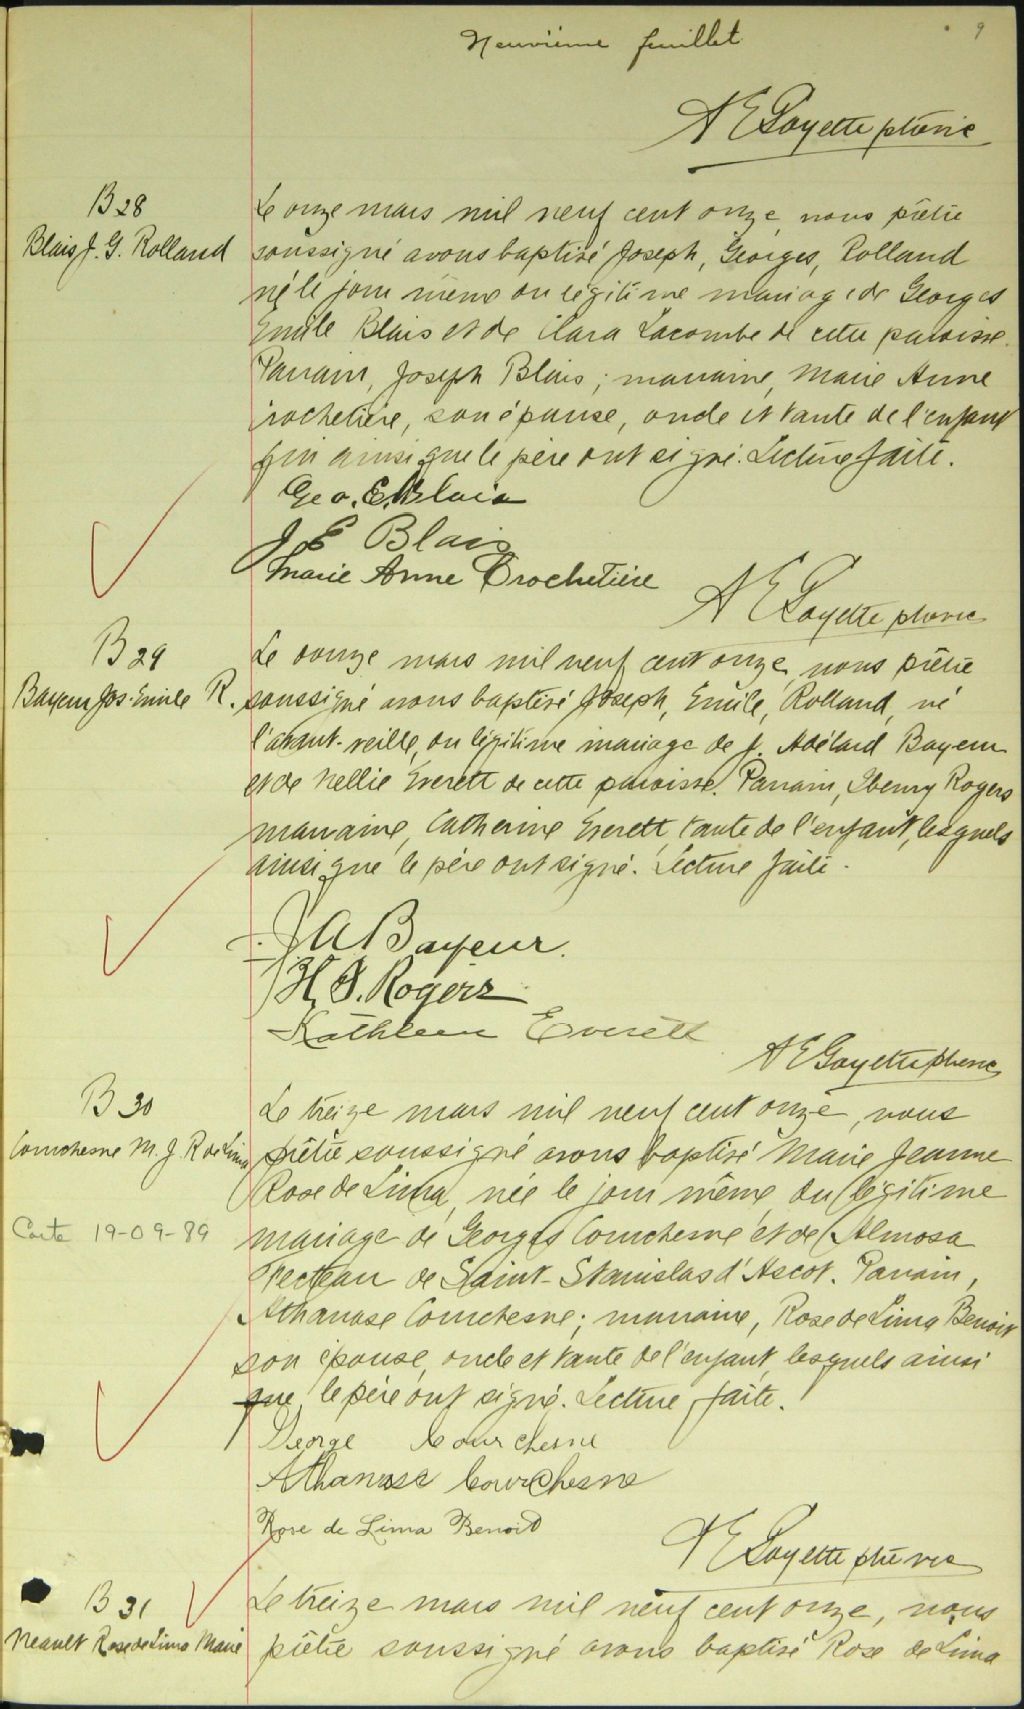 Neuvième feuillet
9
A E Payette ptre vic
B 28
Blais J. G. Rolland
Le onze mars mil neuf cent onze, nous prêtre
soussigné avons baptisé Joseph, Georges, Rolland
né le jour même du légitime mariage de Georges
Emile Blais et de Clara Lacombe de cette paroisse.
Parrain, Joseph Blais; marraine, Marie Anne
Crochetière, son épouse, oncle et tante de l'enfant
qui ainsi que le père ont signé. Lecture faite.
Geo. E. Blais
J E Blais
Marie Anne Crochetière
A E Payette ptre vic
B 29
Bayeur Jos. Emile R.
Le onze mars mil neuf cent onze, nous prêtre
soussigné avons baptisé Joseph, Emile, Rolland, né
l'avant-veille, du légitime mariage de J. Adélard Bayeur
et de Nellie Everett de cette paroisse. Parrain, Henry Rogers
marraine, Catherine Everett, tante de l'enfant, lesquels
ainsi que le père ont signé. Lecture faite.
J A Bayeur.
H. J. Rogers
Kathleen Everett
A E Payette ptre vic
B 30
Courchesne M. J. R de Lima
Carte 19-09-89
Le treize mars mil neuf cent onze, nous
prêtre soussigné avons baptisé Marie Jeanne
Rose de Lima, née le jour même, du légitime
mariage de Georges Courchesne et de Almosa
Fecteau de Saint-Stanislas d'Ascot. Parrain,
Athanase Courchesne; marraine, Rose de Lima Benoit
son épouse, oncle et tante de l'enfant, lesquels ainsi
que le père ont signé. Lecture faite.
George Courchesne
Athanase Courchesne
Rose de Lima Benoit
A E Payette ptre vic
B 31
Neault Rose de Lima Marie
Le treize mars mil neuf cent onze, nous
prêtre soussigné avons baptisé Rose de Lima